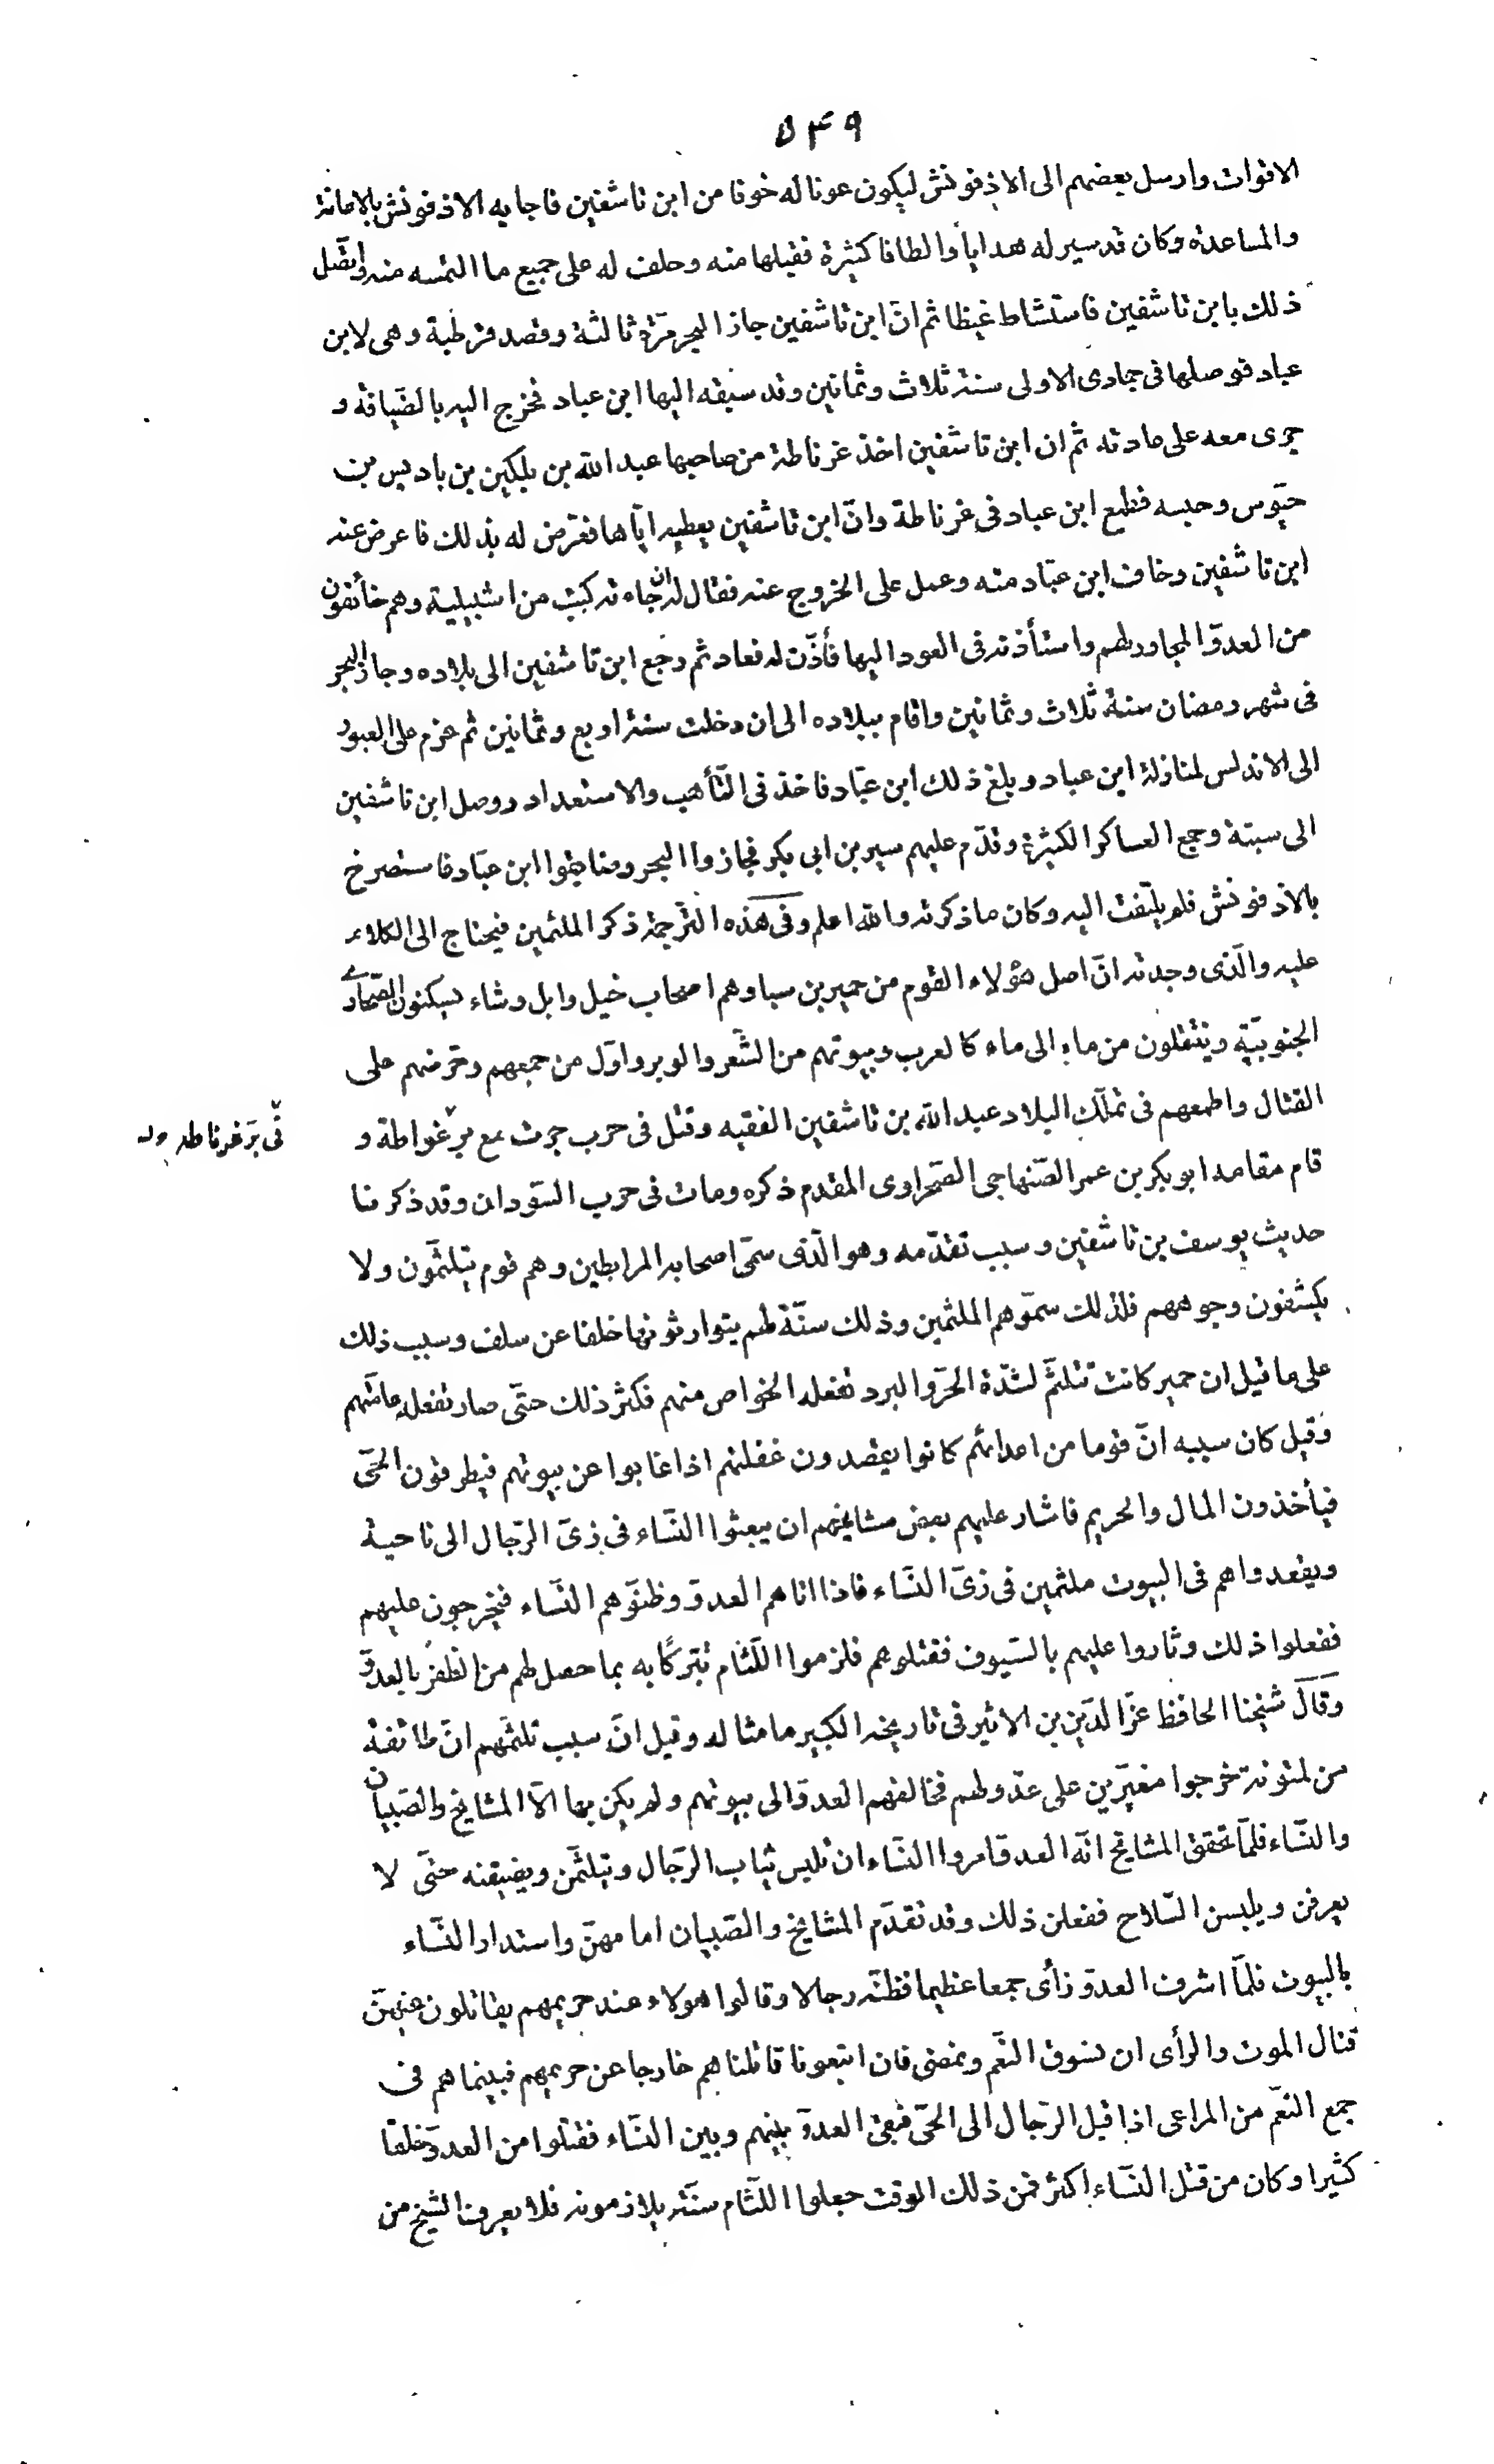 ٥٣٩
الاقوات وارسل بعضهم الى الاذفونش ليكون عونا له خوفا من ابن تاشفين فاجابه الاذفونش بالاعانة
والمساعدة وكان قد سير له هدايا والطافا كثيرة فقبلها منه وحلف له على جميع ما التمسه منه واتصل
ذلك بابن تاشفين فاستشاط غيظا ثم انّ ابن تاشفين جاز البحر مرّة ثالثة وقصد قرطبة وهى لابن
عباد فوصلها فى جمادى الاولى سنة ثلاث وثمانين وقد سبقه اليها ابن عباد فخرج اليه بالضّيافة و
جرى معه على عادته ثم ان ابن تاشفين اخذ غرناطة من صاحبها عبد الله بن بلكين بن باديس بن
حبّوس وحبسه فطمع ابن عباد فى غرناطة وانّ ابن تاشفين يعطيه ايّاها فعرّض له بذلك فاعرض عنه
ابن تاشفين وخاف ابن عبّاد منه وعمل على الخروج عنه فقال له ان جاءته كتب من اشبيلية وهم خائفون
من العدوّ المجاور لهم واستأذنه فى العود اليها فأذن له فعاد ثم رجع ابن تاشفين الى بلاده وجاز البحر
فى شهر رمضان سنة ثلاث وثمانين واقام ببلاده الى ان دخلت سنة اربع وثمانين ثم عزم على العبور
الى الاندلس لمنازلة ابن عباد وبلغ ذلك ابن عبّاد فاخذ فى التّأهب والاستعداد ووصل ابن تاشفين
الى سبتة وجمع العساكر الكثيرة وقدّم عليهم سير بن ابى بكر فجازوا البحر وضايقوا ابن عبّاد فاستصرخ
بالاذفونش فلم يلتفت اليه وكان ما ذكرته والله اعلم وفى هذه التّرجمة ذكر الملثمين فيحتاج الى الكلام
عليه والّذى وجدته انّ اصل هؤلاء القوم من حمير بن سبا وهم اصحاب خيل وابل وشاء يسكنون الصّحارى
الجنوبيّة وينتقلون من ماء الى ماء كالعرب وبيوتهم من الشّعر والوبر واوّل من جمعهم وحرّضهم على
القتال واطمعهم فى تملّك البلاد عبد الله بن تاشفين الفقيه وقتل فى حرب جرت مع برغواطة و
قام مقامه ابو بكر بن عمر الصّنهاجى الصّحراوى المقدم ذكره ومات فى حرب السّودان وقد ذكرنا
حديث يوسف بن تاشفين وسبب تقدّمه وهو الّذى سمّى اصحابه المرابطين وهم قوم يتلثّمون ولا
يكشفون وجوههم فلذلك سمّوهم الملثمين وذلك سنّة لهم يتوارثونها خلفا عن سلف وسبب ذلك
على ما قيل ان حمير كانت تتلثّم لشدّة الحرّ والبرد تفعله الخواص منهم فكثر ذلك حتّى صار تفعله عامّتهم
وقيل كان سببه انّ قوما من اعدائهم كانوا يقصدون غفلتهم اذا غابوا عن بيوتهم فيطرقون الحىّ
فيأخذون المال والحريم فاشار عليهم بعض مشايخهم ان يبعثوا النّساء فى زىّ الرّجال الى ناحية
ويقعدوا هم فى البيوت ملثمين فى زىّ النّساء فاذا اتاهم العدوّ وظنّوهم النّساء فيخرجون عليهم
ففعلوا ذلك وثاروا عليهم بالسّيوف فقتلوهم فلزموا اللّثام تبرّكًا به بما حصل لهم من الظفر بالعدوّ
وقال شيخنا الحافظ عزّ الدّين بن الاثير فى تاريخه الكبير ما مثاله وقيل انّ سبب تلثمّهم انّ طائفة
من لمتونة خرجوا مغيّرين على عدوّ لهم فخالفهم العدوّ الى بيوتهم ولم يكن بها الّا المشايخ والصّبيان
والنّساء فلمّا تحقق المشايخ انّه العدو امروا النّساء ان تلبس ثياب الرّجال ويتلثّمن ويضيقنه حتّى لا
يعرفن ويلبسن السّلاح ففعلن ذلك وقد تقدّم المشايخ والصّبيان امامهنّ واستدار النّساء
بالبيوت فلمّا اشرف العدوّ رأى جمعا عظيما فظنّه رجالا وقالوا هولاء عند حريمهم يقاتلون عنهنّ
قتال الموت والرأى ان نسوق النّعم ونمضى فان اتبعونا قاتلناهم خارجا عن حريمهم فبينما هم فى
جمع النعّم من المراعى اذا قبل الرّجال الى الحىّ فبقى العدوّ بينهم وبين النّساء فقتلوا من العدوّ خلقا
كثيرا وكان من قتل النّساء اكثر فمن ذلك الوقت جعلوا اللّثام سنّة يلازمونه فلا يعرف الشيخ من